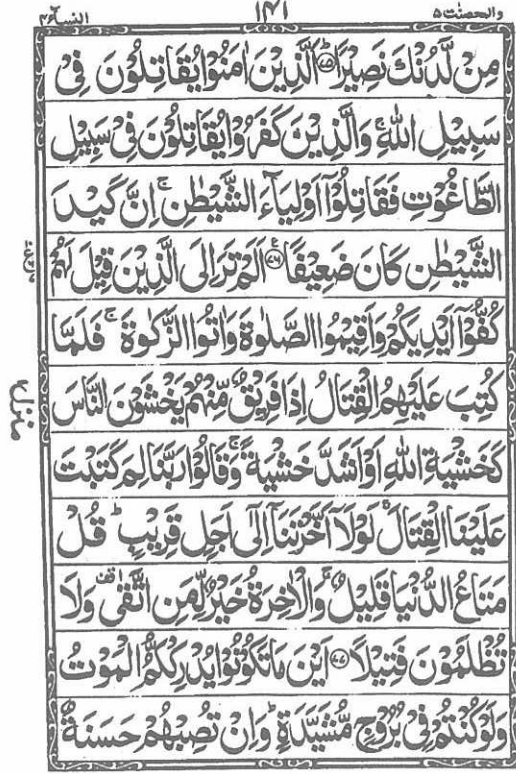 والمحصنت ۵ ۱۴۱ النسآء ۴
مِنْ لَّدُنْكَ نَصِيْرًا ؕ﴿۷۵﴾ اَلَّذِيْنَ اٰمَنُوْا يُقَاتِلُوْنَ فِيْ
سَبِيْلِ اللّٰهِ ۚ وَالَّذِيْنَ كَفَرُوْا يُقَاتِلُوْنَ فِيْ سَبِيْلِ
الطَّاغُوْتِ فَقَاتِلُوْۤا اَوْلِيَآءَ الشَّيْطٰنِ ۚ اِنَّ كَيْدَ
الشَّيْطٰنِ كَانَ ضَعِيْفًا ﴿۷۶﴾ اَلَمْ تَرَ اِلَى الَّذِيْنَ قِيْلَ لَهُمْ
كُفُّوْۤا اَيْدِيَكُمْ وَاَقِيْمُوا الصَّلٰوةَ وَاٰتُوا الزَّكٰوةَ ۚ فَلَمَّا
كُتِبَ عَلَيْهِمُ الْقِتَالُ اِذَا فَرِيْقٌ مِّنْهُمْ يَخْشَوْنَ النَّاسَ
كَخَشْيَةِ اللّٰهِ اَوْ اَشَدَّ خَشْيَةً ۚ وَقَالُوْا رَبَّنَا لِمَ كَتَبْتَ
عَلَيْنَا الْقِتَالَ ۚ لَوْلَاۤ اَخَّرْتَنَاۤ اِلٰۤى اَجَلٍ قَرِيْبٍ ؕ قُلْ
مَتَاعُ الدُّنْيَا قَلِيْلٌ ۚ وَالْاٰخِرَةُ خَيْرٌ لِّمَنِ اتَّقٰى ۟ وَلَا
تُظْلَمُوْنَ فَتِيْلًا ﴿۷۷﴾ اَيْنَ مَا تَكُوْنُوْا يُدْرِكْكُّمُ الْمَوْتُ
وَلَوْ كُنْتُمْ فِيْ بُرُوْجٍ مُّشَيَّدَةٍ ؕ وَاِنْ تُصِبْهُمْ حَسَنَةٌ
منزل ۱